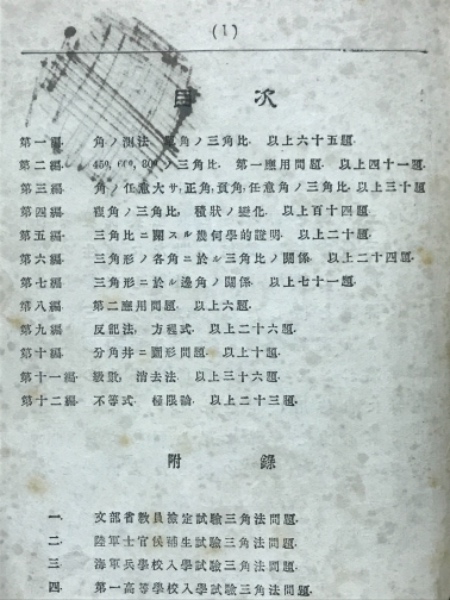 (1)
目 次
第一編. 角ノ測法. 角ノ三角比. 以上六十五題.
第二編. 45°, 60°, 30°ノ三角比. 第一應用問題. 以上四十一題.
第三編. 角ノ任意大サ, 正角, 負角, 任意角ノ三角比. 以上三十題
第四編. 複角ノ三角比, 積狀ノ變化. 以上百十四題.
第五編. 三角比ニ關スル幾何學的證明. 以上二十題.
第六編. 三角形ノ各角ニ於ル三角比ノ關係. 以上二十四題.
第七編. 三角形ニ於ル邊角ノ關係. 以上七十一題.
第八編. 第二應用問題. 以上六題.
第九編. 反記法, 方程式. 以上二十六題.
第十編. 分角幷ニ圖形問題. 以上十題.
第十一編. 級數, 消去法. 以上三十六題.
第十二編. 不等式. 極限論. 以上二十三題.
附 錄
一. 文部省敎員檢定試驗三角法問題.
二. 陸軍士官候補生試驗三角法問題.
三. 海軍兵學校入學試驗三角法問題.
四. 第一高等學校入學試驗三角法問題.